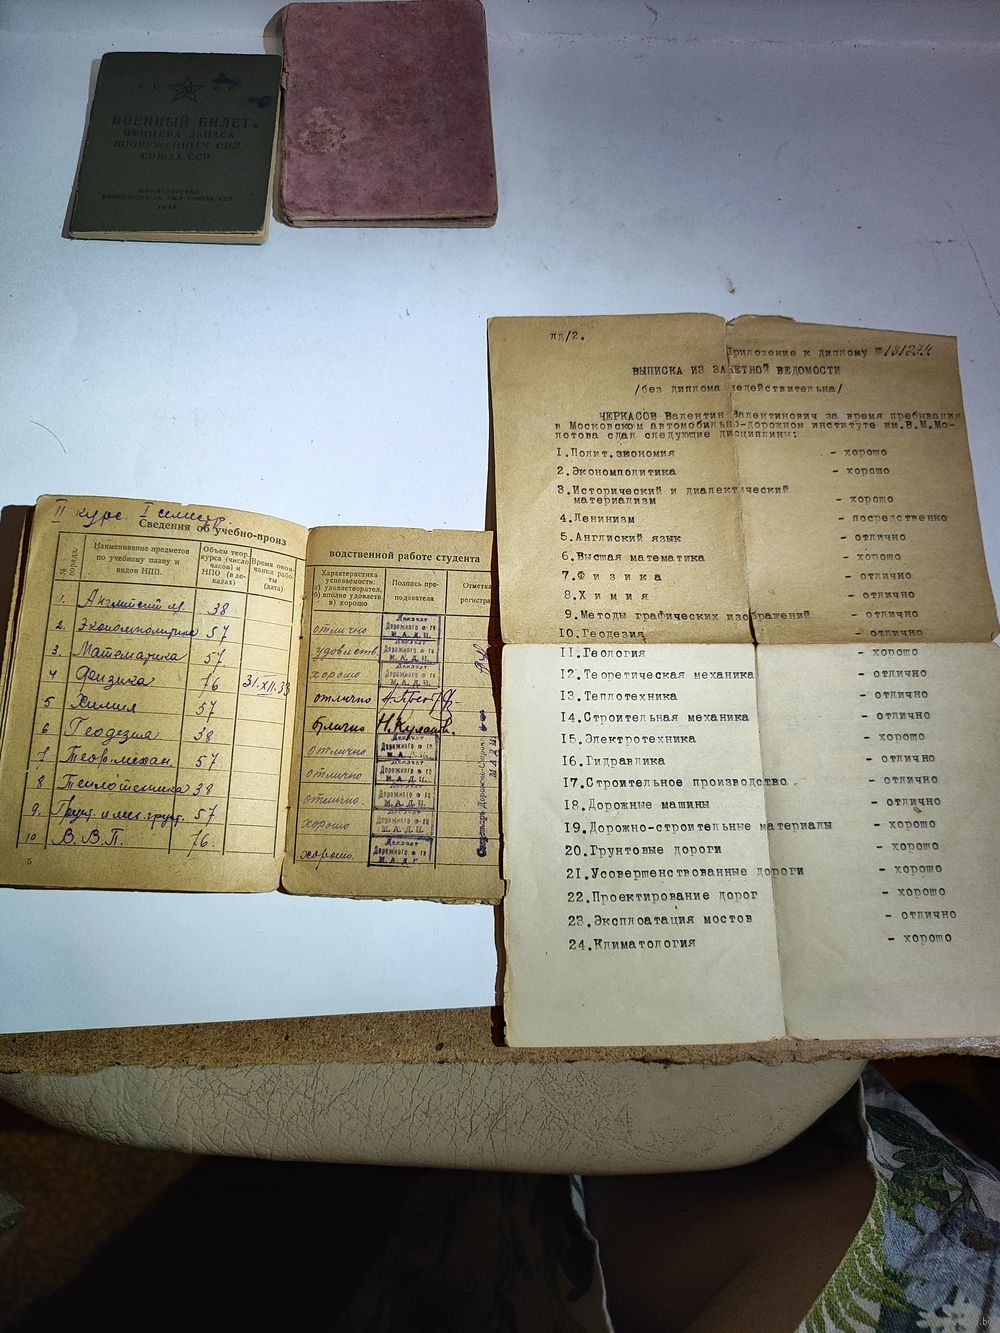 СССР
ВОЕННЫЙ БИЛЕТ
ОФИЦЕРА ЗАПАСА
ВООРУЖЕННЫХ СИЛ
СОЮЗА ССР
МИНИСТЕРСТВО
ВООРУЖЕННЫХ СИЛ СОЮЗА ССР
лд/2.
Приложение к диплому № 181274
ВЫПИСКА ИЗ ЗАЧЕТНОЙ ВЕДОМОСТИ
/без диплома недействительна/
ЧЕРКАСОВ Валентин Валентинович за время пребывания
в Московском автомобильно-дорожном институте им.В.М.Мо-
лотова сдал следующие дисциплины:
1.Полит.экономия - хорошо
2.Экономполитика - хорошо
3.Исторический и диалектический
материализм - хорошо
4.Ленинизм - посредственно
5.Англиский язык - отлично
6.Высшая математика - хорошо
7.Физика - отлично
8.Химия - отлично
9.Методы графических изображений - отлично
10.Геодезия - отлично
11.Геология - хорошо
12.Теоретическая механика - отлично
13.Теплотехника - отлично
14.Строительная механика - отлично
15.Электротехника - хорошо
16.Гидравлика - отлично
17.Строительное производство. - отлично
18.Дорожные машины - отлично
19.Дорожно-строительные материалы - хорошо
20.Грунтовые дороги - хорошо
21.Усовершенствованные дороги - хорошо
22.Проектирование дорог - хорошо
23.Эксплоатация мостов - отлично
24.Климатология - хорошо
II курс I семестр
Сведения об учебно-произ
№ порядк.
Наименование предметов
по учебному плану и
видов НПП.
Объем теор.
курса (число
часов) и
НПО (в де-
кадах)
Время окон-
чания рабо-
ты
(дата)
1. Английский яз. 38
2. Экономполитика 57
3 Математика 57
4 Физика 76 31.XII.39
5 Химия 57
6 Геодезия 38
7 Теор. механ. 57
8 Теплотехника 38
9. 57
10 В.В.П. 76.
5
водственной работе студента
Характеристика
успеваемости:
а) удовлетворител.
б) вполне удовлетв.
в) хорошо
Подпись пре-
подавателя
Отметка
регистра
отлично Деканат Дорожного ф-та М.А.Д.И.
удовлеств. Деканат Дорожного ф-та М.А.Д.И.
хорошо
отлично
отлично
отлично Деканат Дорожного ф-та М.А.Д.И.
отлично Деканат Дорожного ф-та М.А.Д.И.
отлично Деканат Дорожного ф-та М.А.Д.И.
хорошо Деканат Дорожного ф-та М.А.Д.И.
хорошо. Деканат Дорожного ф-та М.А.Д.И.